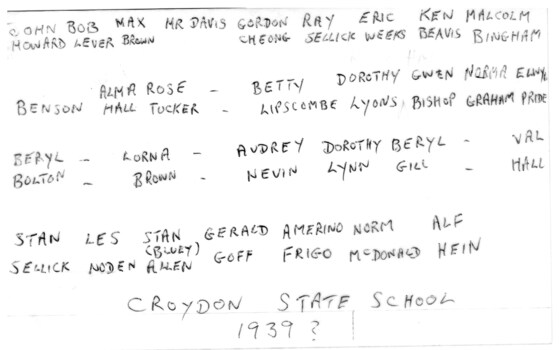 JOHN BOB MAX MR DAVIS GORDON RAY ERIC KEN MALCOLM
HOWARD LEVER BROWN CHEONG SELLICK WEEKS BEAVIS BINGHAM
ALMA ROSE - BETTY DOROTHY GWEN NORMA ELWYN
BENSON HALL TUCKER - LIPSCOMBE LYONS BISHOP GRAHAM PRIDE
BERYL - LORNA - AUDREY DOROTHY BERYL - VAL
BOLTON - BROWN - NEVIN LYNN GILL - HALL
STAN LES STAN GERALD AMERINO NORM ALF
(BLUEY)
SELLICK NODEN ALLEN GOFF FRIGO McDONALD HEIN
CROYDON STATE SCHOOL
1939 ?